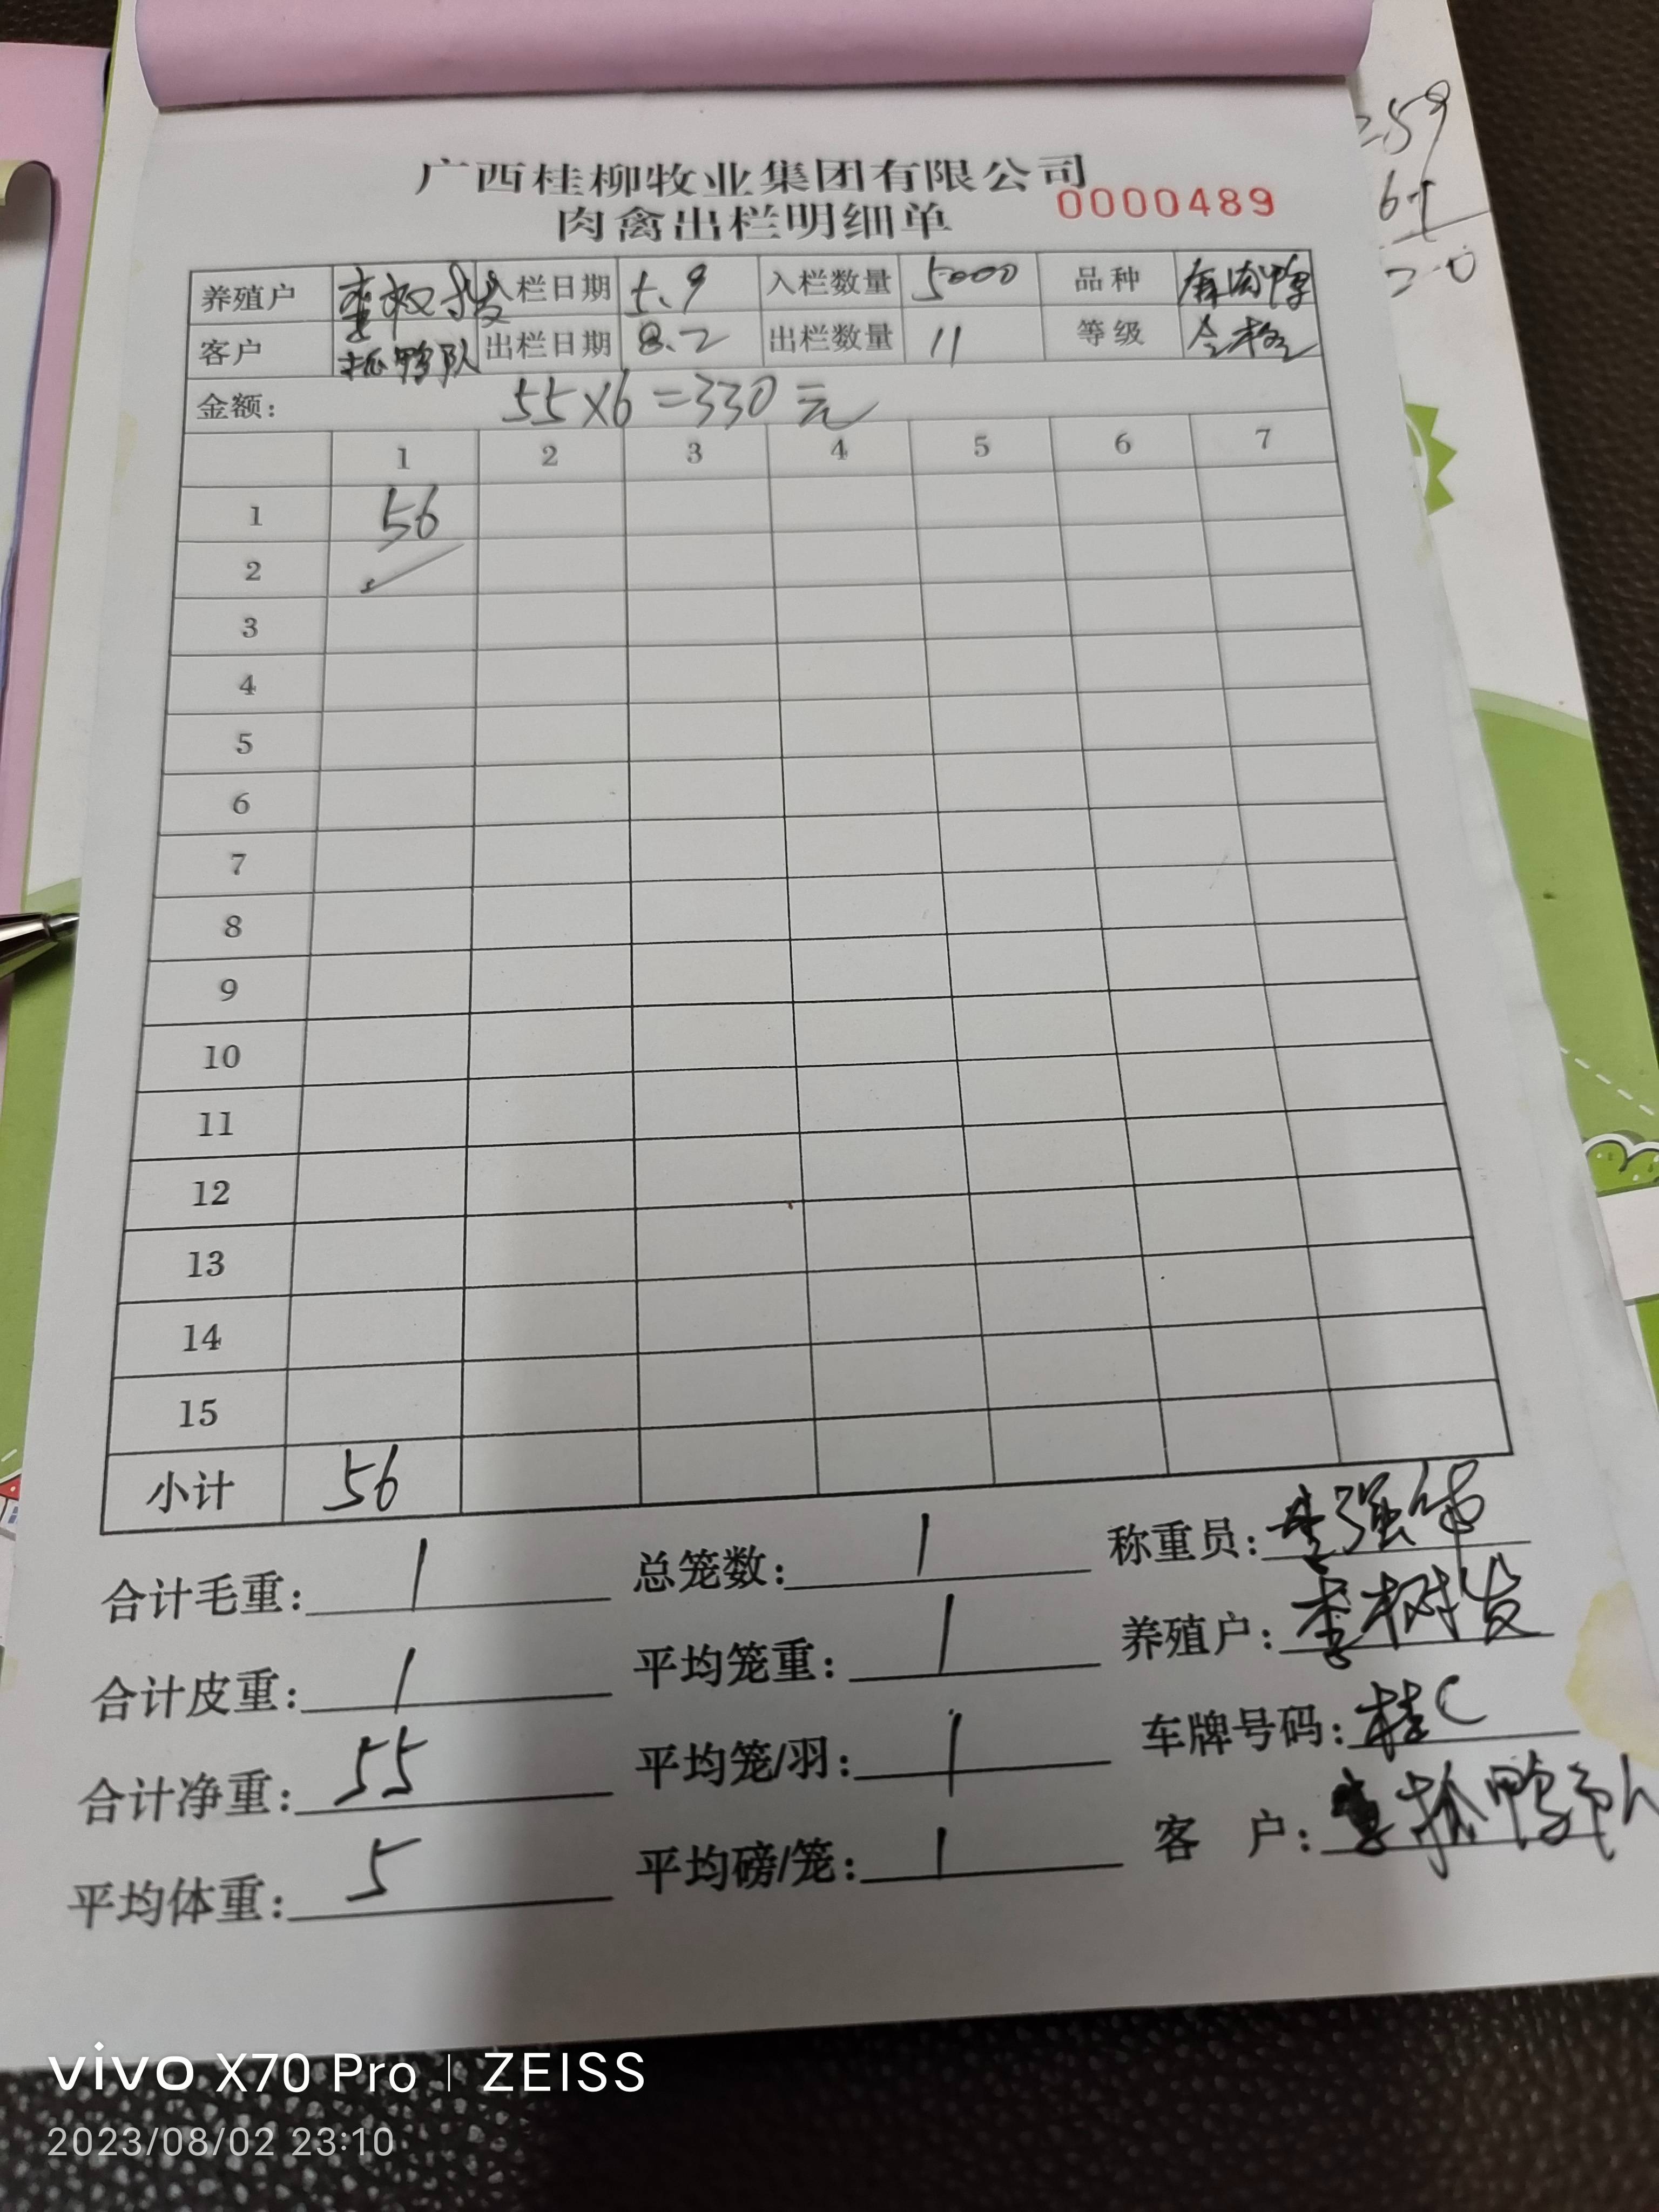 广西桂柳牧业集团有限公司
肉禽出栏明细单 0000489
养殖户 李树发 入栏日期 5.9 入栏数量 5000 品种 麻肉鸭
客户 抓鸭队 出栏日期 8.2 出栏数量 11 等级 合格
金额: 55×6=330元
1 2 3 4 5 6 7
1 56
2
3
4
5
6
7
8
9
10
11
12
13
14
15
小计 56
合计毛重: / 总笼数: / 称重员: 李强
合计皮重: / 平均笼重: / 养殖户: 李树发
合计净重: 55 平均笼/羽: / 车牌号码: 桂C
平均体重: 5 平均磅/笼: / 客户: 抓鸭队
259
vivo X70 Pro | ZEISS
2023/08/02 23:10